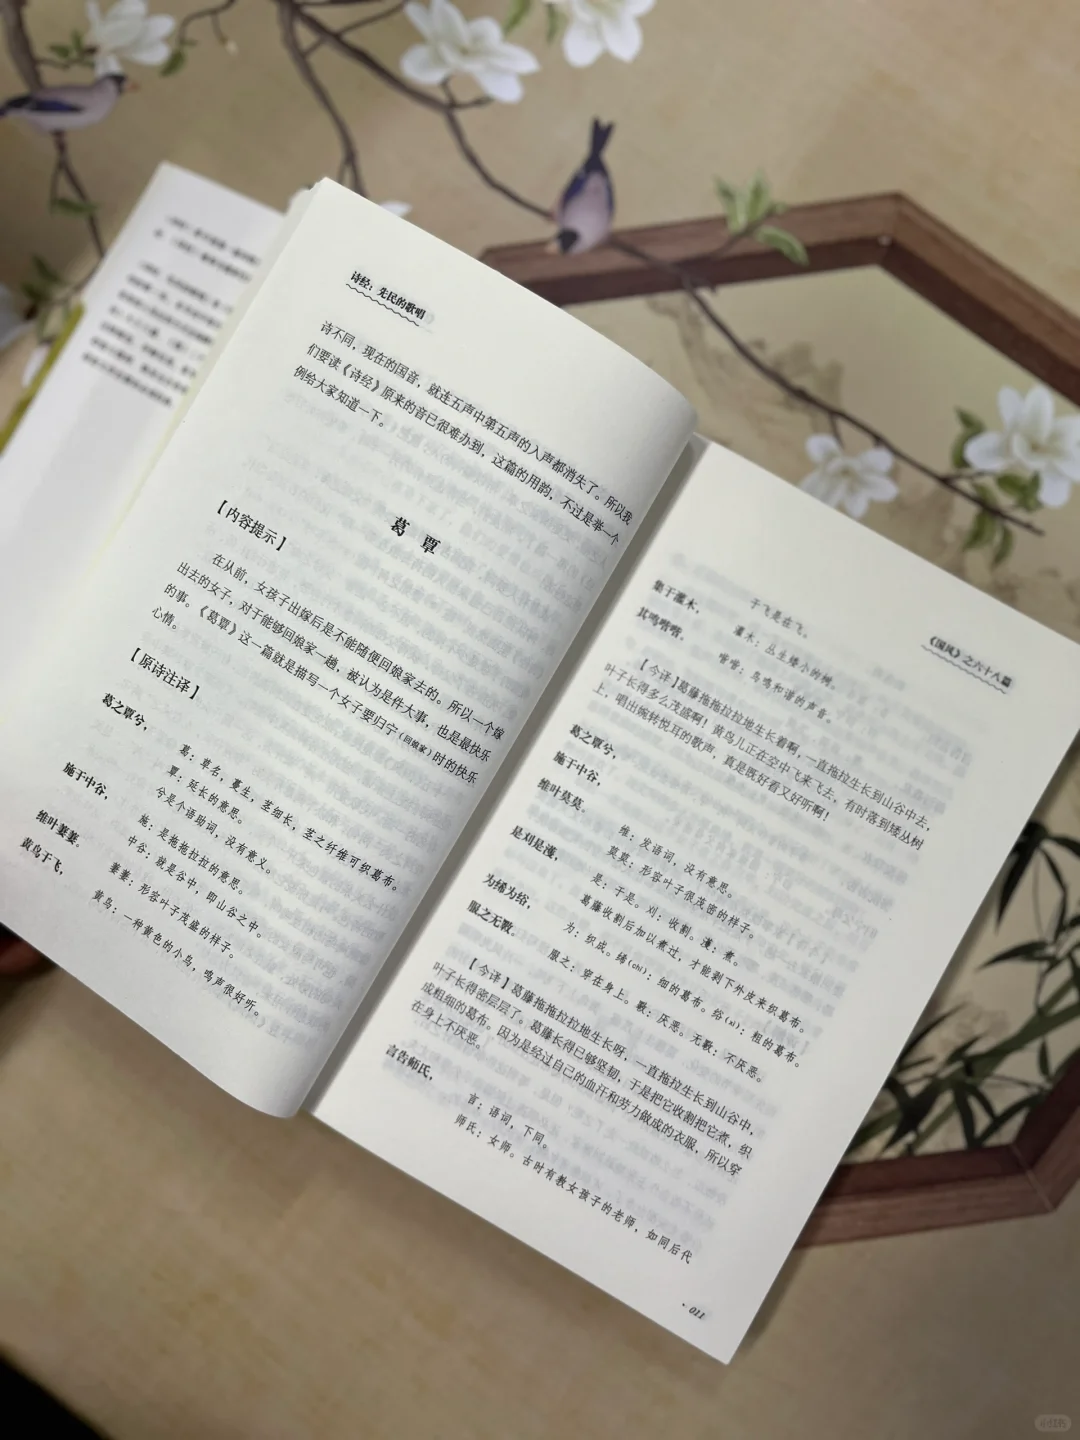 诗经：先民的歌唱
诗不同，现在的国音，就连五声中第五声的入声都消失了。所以我
们要读《诗经》原来的音已很难办到，这篇的用韵，不过是举一个
例给大家知道一下。
葛 覃
【内容提示】
在从前，女孩子出嫁后是不能随便回娘家去的。所以一个嫁
出去的女子，对于能够回娘家一趟，被认为是件大事，也是最快乐
的事。《葛覃》这一篇就是描写一个女子要归宁（回娘家）时的快乐
心情。
【原诗注译】
葛之覃兮，
葛：草名，蔓生，茎细长，茎之纤维可织葛布。
覃：延长的意思。
兮是个语助词，没有意义。
施于中谷，
施：是拖拖拉拉的意思。
中谷：就是谷中，即山谷之中。
维叶萋萋。
萋萋：形容叶子茂盛的样子。
黄鸟于飞，
黄鸟：一种黄色的小鸟，鸣声很好听。
《国风》之六十八篇
于飞是在飞。
集于灌木，
灌木：丛生矮小的树。
其鸣喈喈。
喈喈：鸟鸣和谐的声音。
【今译】葛藤拖拖拉拉地生长着啊，一直拖拉生长到山谷中去，
叶子长得多么茂盛啊！黄鸟儿正在空中飞来飞去，有时落到矮丛树
上，唱出婉转悦耳的歌声，真是既好看又好听啊！
葛之覃兮，
施于中谷，
维叶莫莫。
维：发语词，没有意思。
莫莫：形容叶子很茂密的样子。
是刈是濩，
是：于是。刈：收割。濩：煮。
葛藤收割后加以煮过，才能剥下外皮来织葛布。
为𫄨为绤，
为：织成。𫄨(chī)：细的葛布。绤(xì)：粗的葛布。
服之无斁。
服之：穿在身上。斁：厌恶。无斁：不厌恶。
【今译】葛藤拖拖拉拉地生长呀，一直拖拉生长到山谷中，
叶子长得密层层了。葛藤长得已够坚韧，于是把它收割把它煮，织
成粗细的葛布。因为是经过自己的血汗和劳力做成的衣服，所以穿
在身上不厌恶。
言告师氏，
言：语词，下同。
师氏：女师。古时有教女孩子的老师，如同后代
· 011
小红书